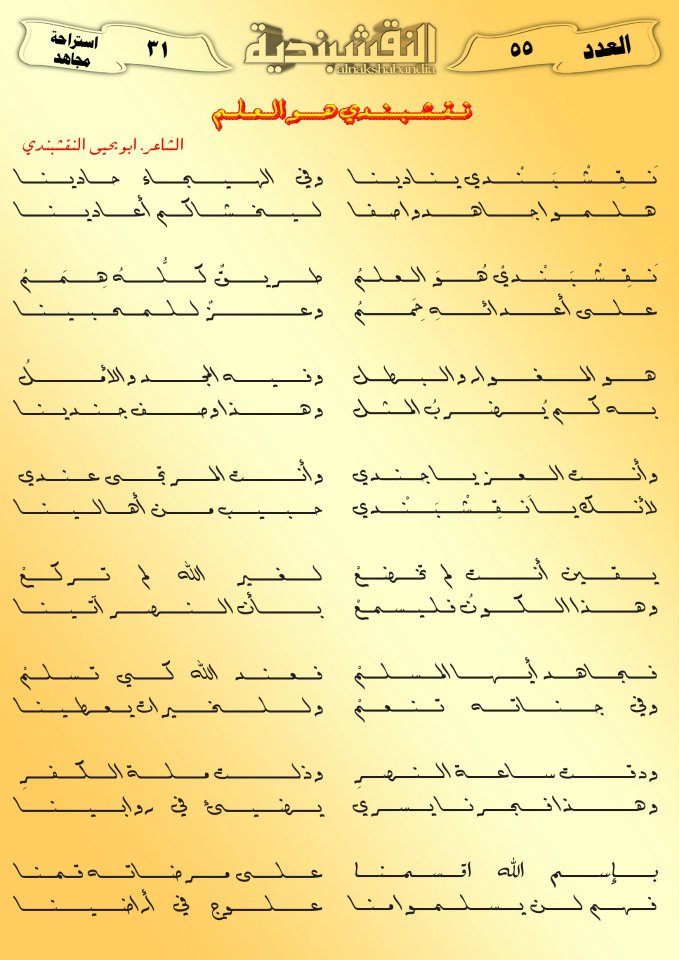 العدد
٥٥
النقشبندية
alnakshabandia
٣١
استراحة مجاهد
نقشبندي هو العلم
الشاعر. ابو يحيى النقشبندي
نَقِشْبَنْدي ينادينا وفي الهيجاء حادينا
هلموا جاهدوا صفا ليخشاكم أعادينا
نَقِشْبَنْديْ هُوَ العلمُ طريقٌ كلُّهُ هِمَمُ
على أعدائهِ حِمَمُ وعزٌ للمحبينا
هو المغوار والبطل وفيه المجد والاملُ
به كم يُضربُ المثل وهذا وصف جندينا
وأنت العز يا جندي وأنت المرتجى عندي
لأنك يا نَقِشْبَنْدي حبيب من أهالينا
يقين أنت لم تخضعْ لغير الله لم تركعْ
وهذا الكونُ فليسمعْ بأن النصر آتينا
فجاهد أيها المسلمْ فعند الله كي تسلمْ
وفي جناته تنعمْ وللخيرات يعطينا
ودقت ساعة النصرِ وذلت ملة الكفرِ
وهذا فجرنا يسري يضيئ في روابينا
بإسم الله اقسمنا على مرضاته قمنا
فهم لن يسلموا منا علوج في أراضينا